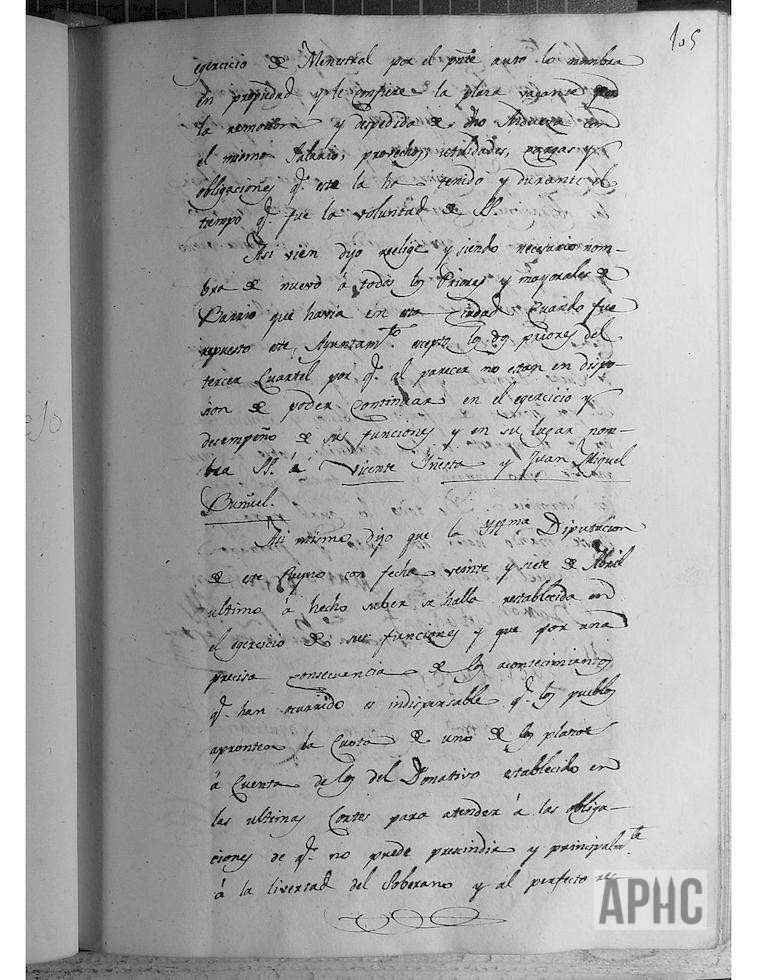 105
egercicio de Menestral por el pnte auto lo nombra
en propiedad y le confiere la plaza vacante por
la remocion y despedida de dho con
el mismo Salario, provechos, utilidades, cargas y
obligaciones q.e este la ha tenido y durante el
tiempo q.e fue la voluntad de SS.
Asi vien dijo reelige y siendo necesario nom-
bra de nuevo á todos los Priores y mayorales de
Barrio que havia en esta Ciudad Cuando fue
repuesto este Ayuntam.to ecepto los dos priores del
tercer Cuartel por q.e al parecer no estan en dispo-
sion de poder Continuar en el egercicio y
desempeño de sus funciones y en su lugar nom-
bra SS. á Vicente Iñesta y Juan Miguel
Buñuel.
Asi mismo dijo que la Yll.ma Diputacion
de este Reyno con fecha veinte y siete de Abril
ultimo á hecho saber se halla restablecida en
el egercicio de sus funciones y que por una
precisa consecuencia de los acontecimientos
q.e han ocurrido es indispensable q.e los pueblos
apronten la Cuota de uno de los plazos
á Cuenta de los del Donativo establecido en
las ultimas Cortes para atender á las obliga-
ciones de q.e no puede prescindir y principalm.te
á la livertad del Soberano y al perfecto res-
APHC